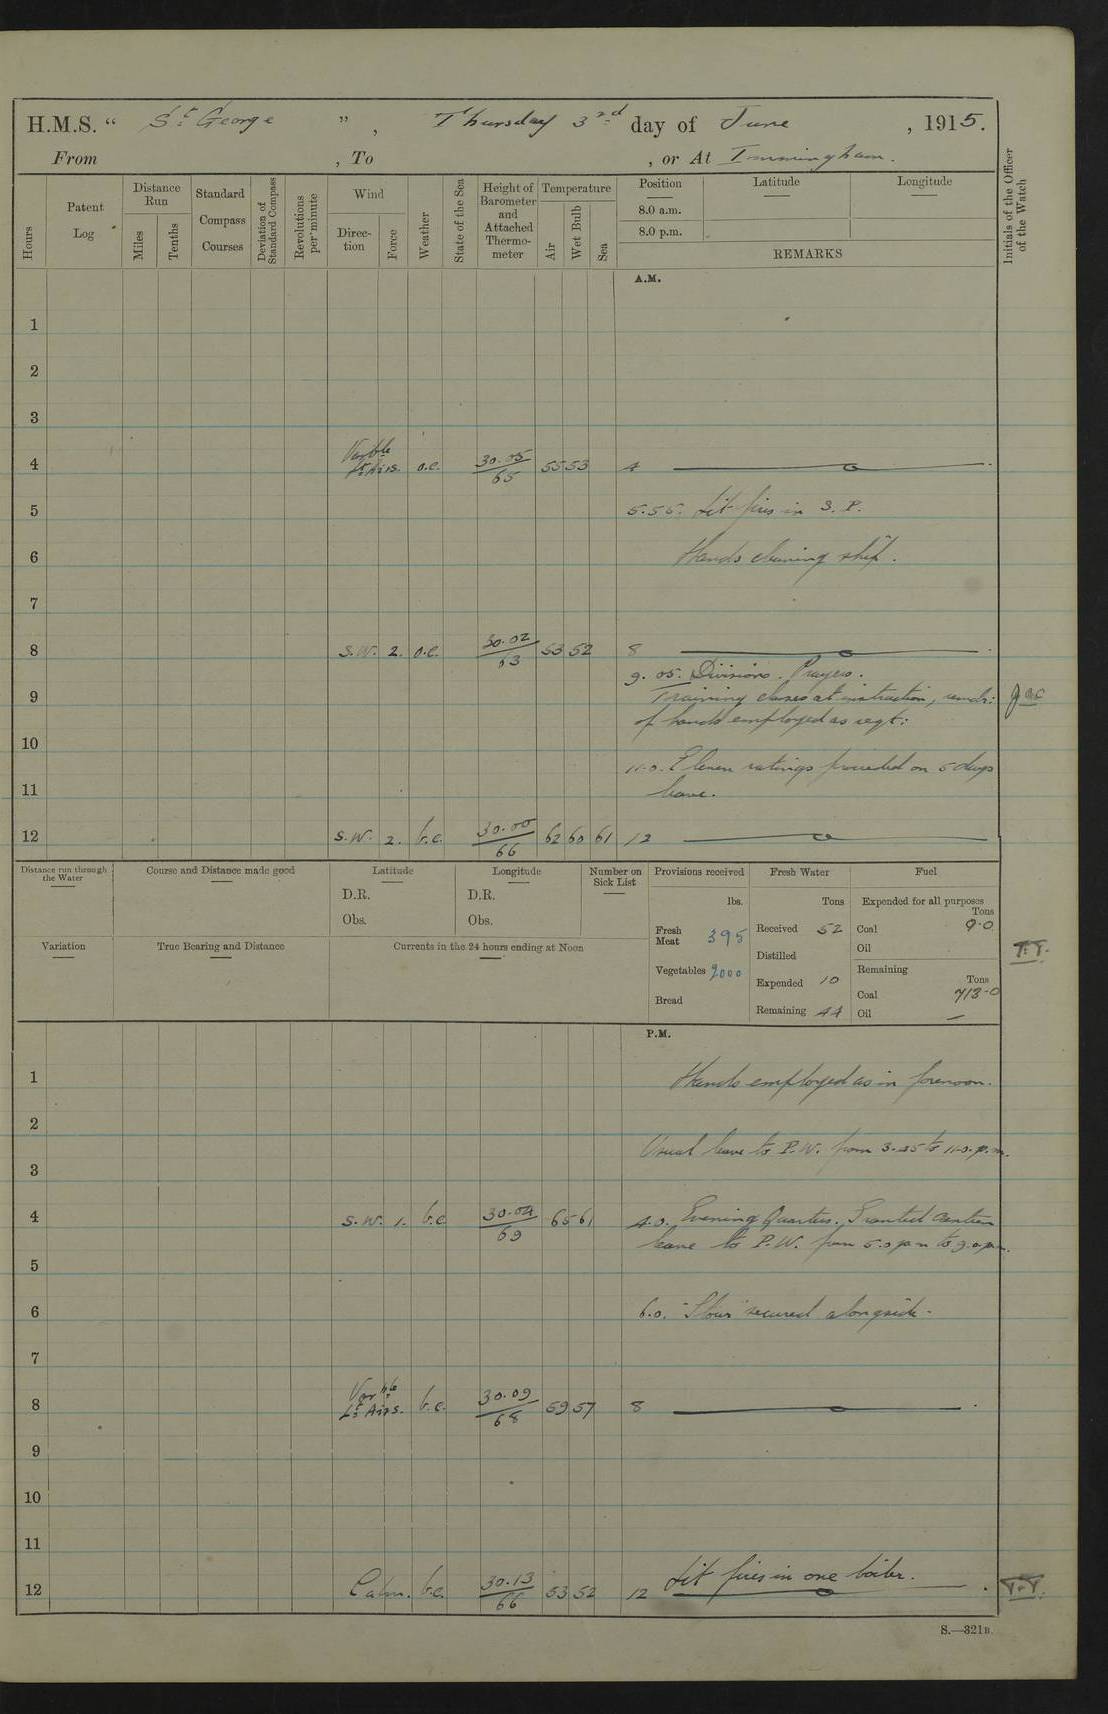 H.M.S. " St George ", Thursday 3rd day of June, 1915.
From , To , or At Immingham.
Hours
Patent Log
Distance Run
Miles
Tenths
Standard Compass Courses
Deviation of Standard Compass
Revolutions per minute
Wind
Direction
Force
Weather
State of the Sea
Height of Barometer and Attached Thermometer
Temperature
Air
Wet Bulb
Sea
Position
8.0 a.m.
8.0 p.m.
Latitude
Longitude
REMARKS
Initials of the Officer of the Watch
A.M.
1
2
3
4 Varble Lt Airs. o.c. 30.05/65 55 53 4
5 5.55. Lit fires in 3. P.
6 Hands cleaning ship.
7
8 S.W. 2. o.c. 30.02/63 53 52 8
9.05. Divisions. Prayers.
9 Training classes at instruction, remdr:
of hands employed as reqt:
10
11.0. Eleven ratings proceeded on 5 days
11 leave.
12 S.W. 2. b.c. 30.00/66 62 60 61 12
Distance run through the Water
Course and Distance made good
Latitude
D.R.
Obs.
Longitude
D.R.
Obs.
Number on Sick List
Provisions received
lbs.
Fresh Meat 395
Vegetables 2000
Bread
Fresh Water
Tons
Received 52
Distilled
Expended 10
Remaining 44
Fuel
Expended for all purposes
Tons
Coal 9.0
Oil
Remaining
Tons
Coal 713-0
Oil —
T.T.
Variation
True Bearing and Distance
Currents in the 24 hours ending at Noon
P.M.
1 Hands employed as in forenoon.
2
Usual leave to P.W. from 3.45 to 11.0. p.m.
3
4 S.W. 1. b.c. 30.04/69 65 61 4.0. Evening Quarters. Granted canteen
leave to P.W. from 5.0 pm to 9.0 pm.
5
6 6.0. secured alongside.
7
8 Varble Lt Airs. b.c. 30.09/68 59 57 8
9
10
11
Lit fires in one boiler.
12 Calm. b.c. 30.13/66 53 52 12 T.T.
S.—321B.